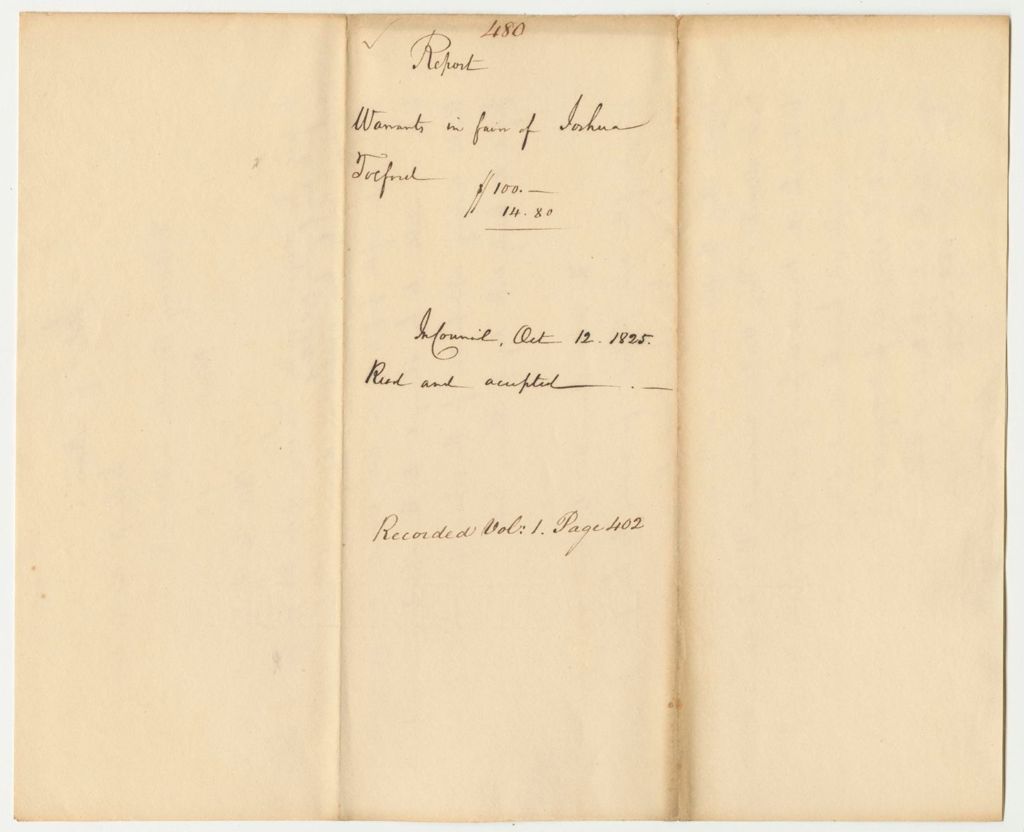 480
Report
Warrants in favr of Joshua
Tolford $100.—
14.80
In Council, Oct 12. 1825.
Read and accepted — . —
Recorded Vol: 1. Page 402